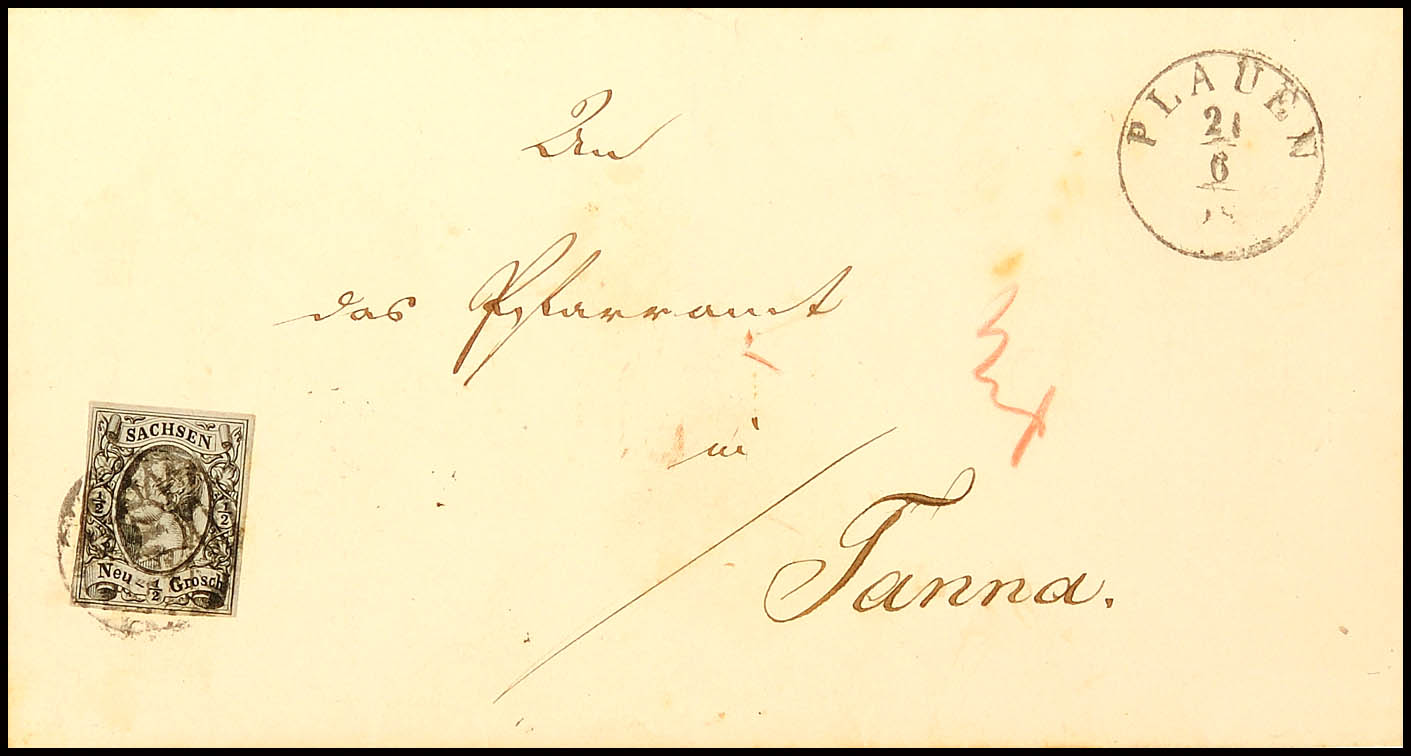 PLAUEN
21
6
An
das Pfarramt
in
Tanna.
SACHSEN
½ ½
Neu - ½ Grosch